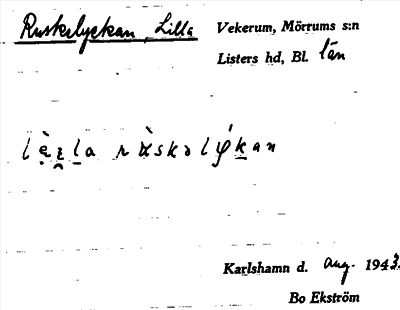 Ruskelyckan, Lilla
Vekerum, Mörrums s:n
Listers hd, Bl. län
Karlshamn d. aug. 1943.
Bo Ekström